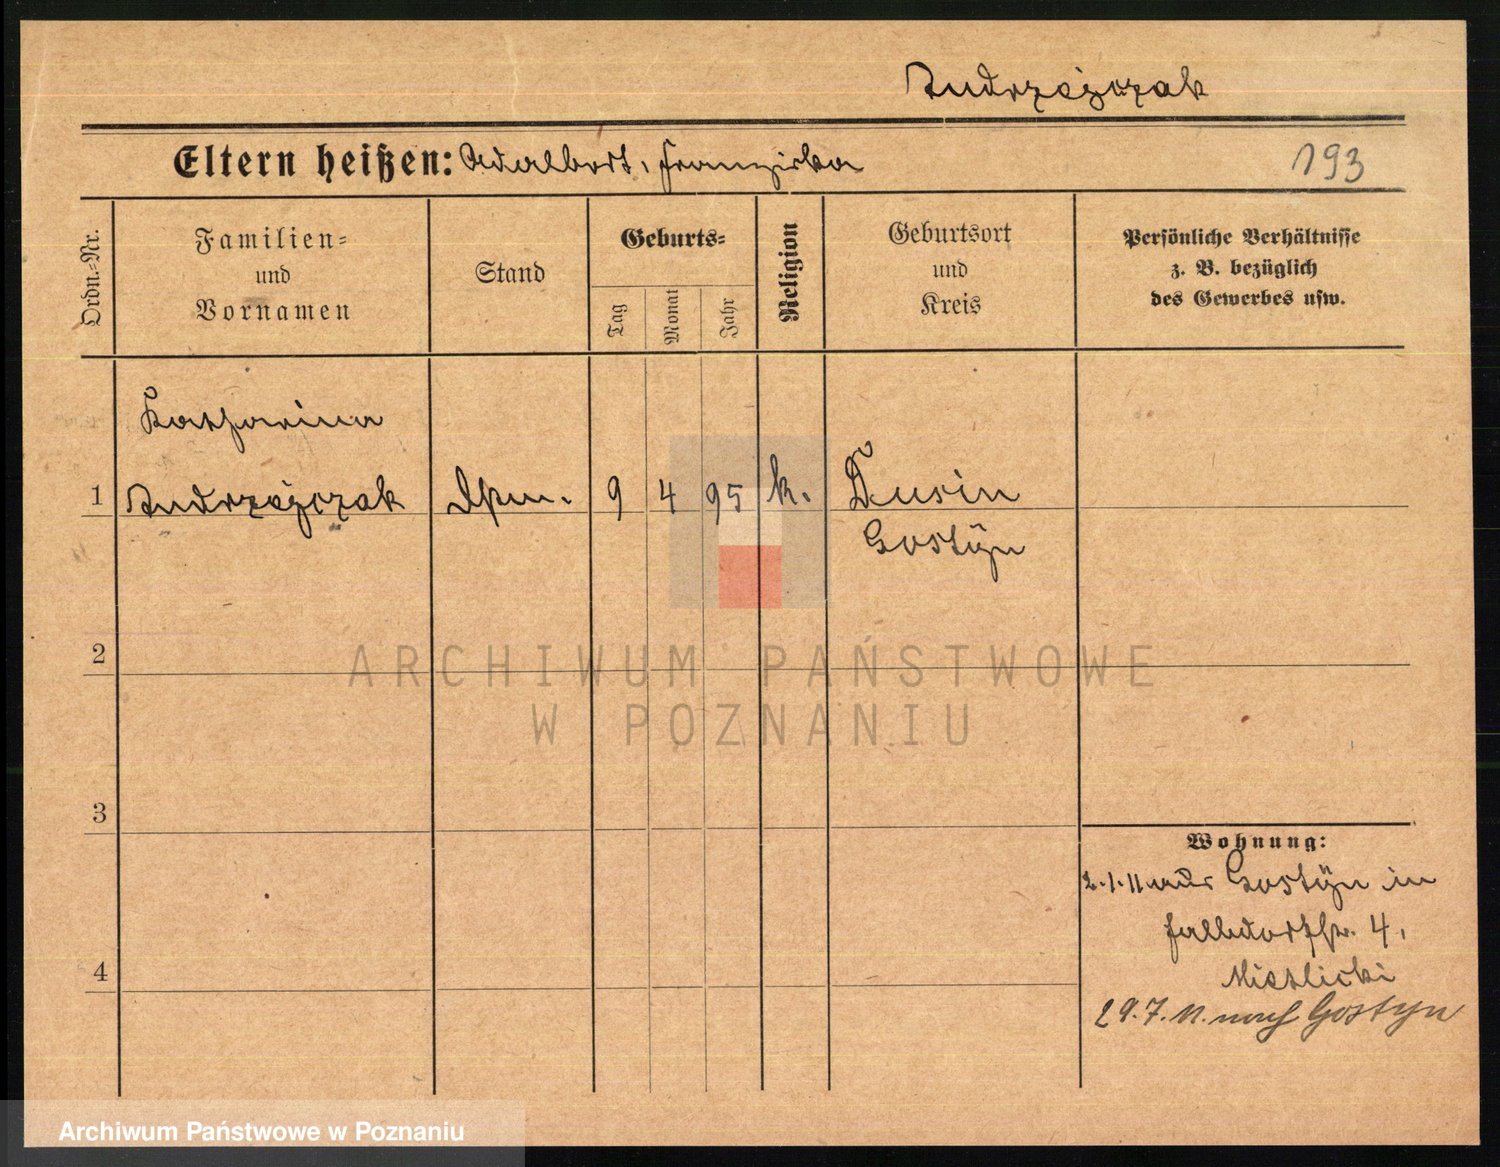 Andrzejczak
Eltern heißen: Adalbert, Franziska
193
Ordn.=Nr.
Familien=
und
Vornamen
Stand
Geburts=
Tag
Monat
Jahr
Religion
Geburtsort
und
Kreis
Persönliche Verhältnisse
z. B. bezüglich
des Gewerbes usw.
Katharina
1 Andrzejczak 9 4 95 k. Dusin
Gostÿn
2
3
4
Wohnung:
2.1.11 aus Gostÿn in
4,
29.7.11. nach Gostyn
ARCHIWUM PAŃSTWOWE
W POZNANIU
Archiwum Państwowe w Poznaniu